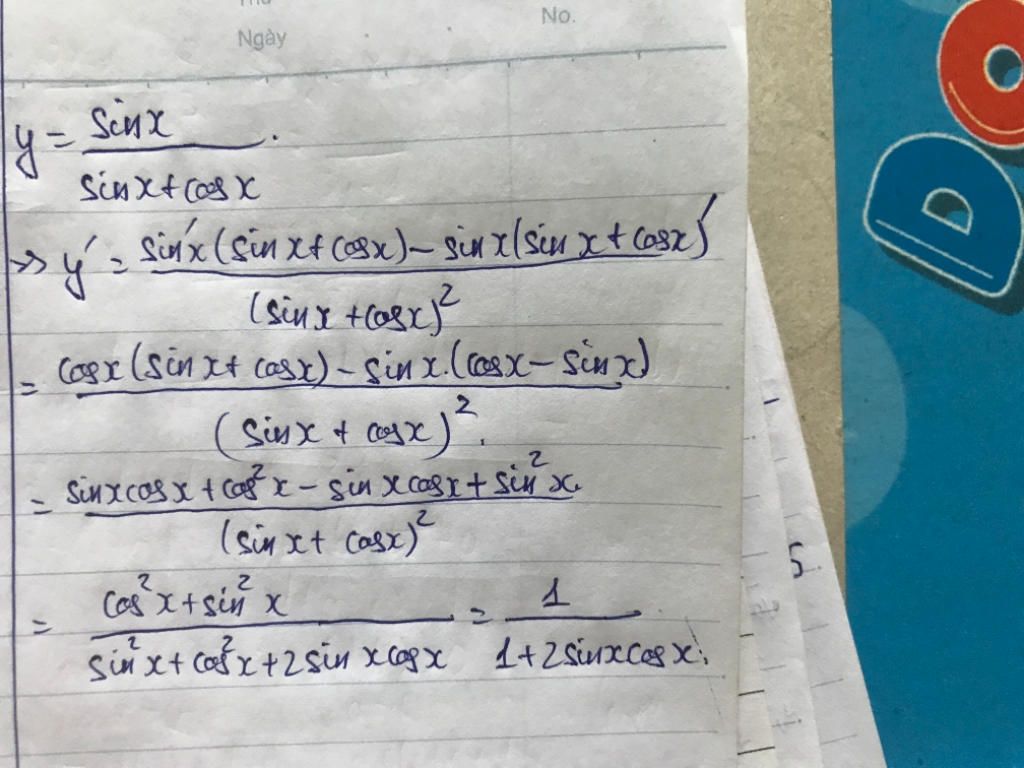 No.
Ngày
y = sinx / sinx+cosx .
=> y' = sin'x(sinx+cosx) - sinx(sinx+cosx)' / (sinx+cosx)²
= cosx(sinx+cosx) - sinx.(cosx-sinx) / (sinx+cosx)².
= sinxcosx+cos²x-sinxcosx+sin²x. / (sinx+cosx)²
= cos²x+sin²x / sin²x+cos²x+2sinxcosx = 1 / 1+2sinxcosx.
DO
5